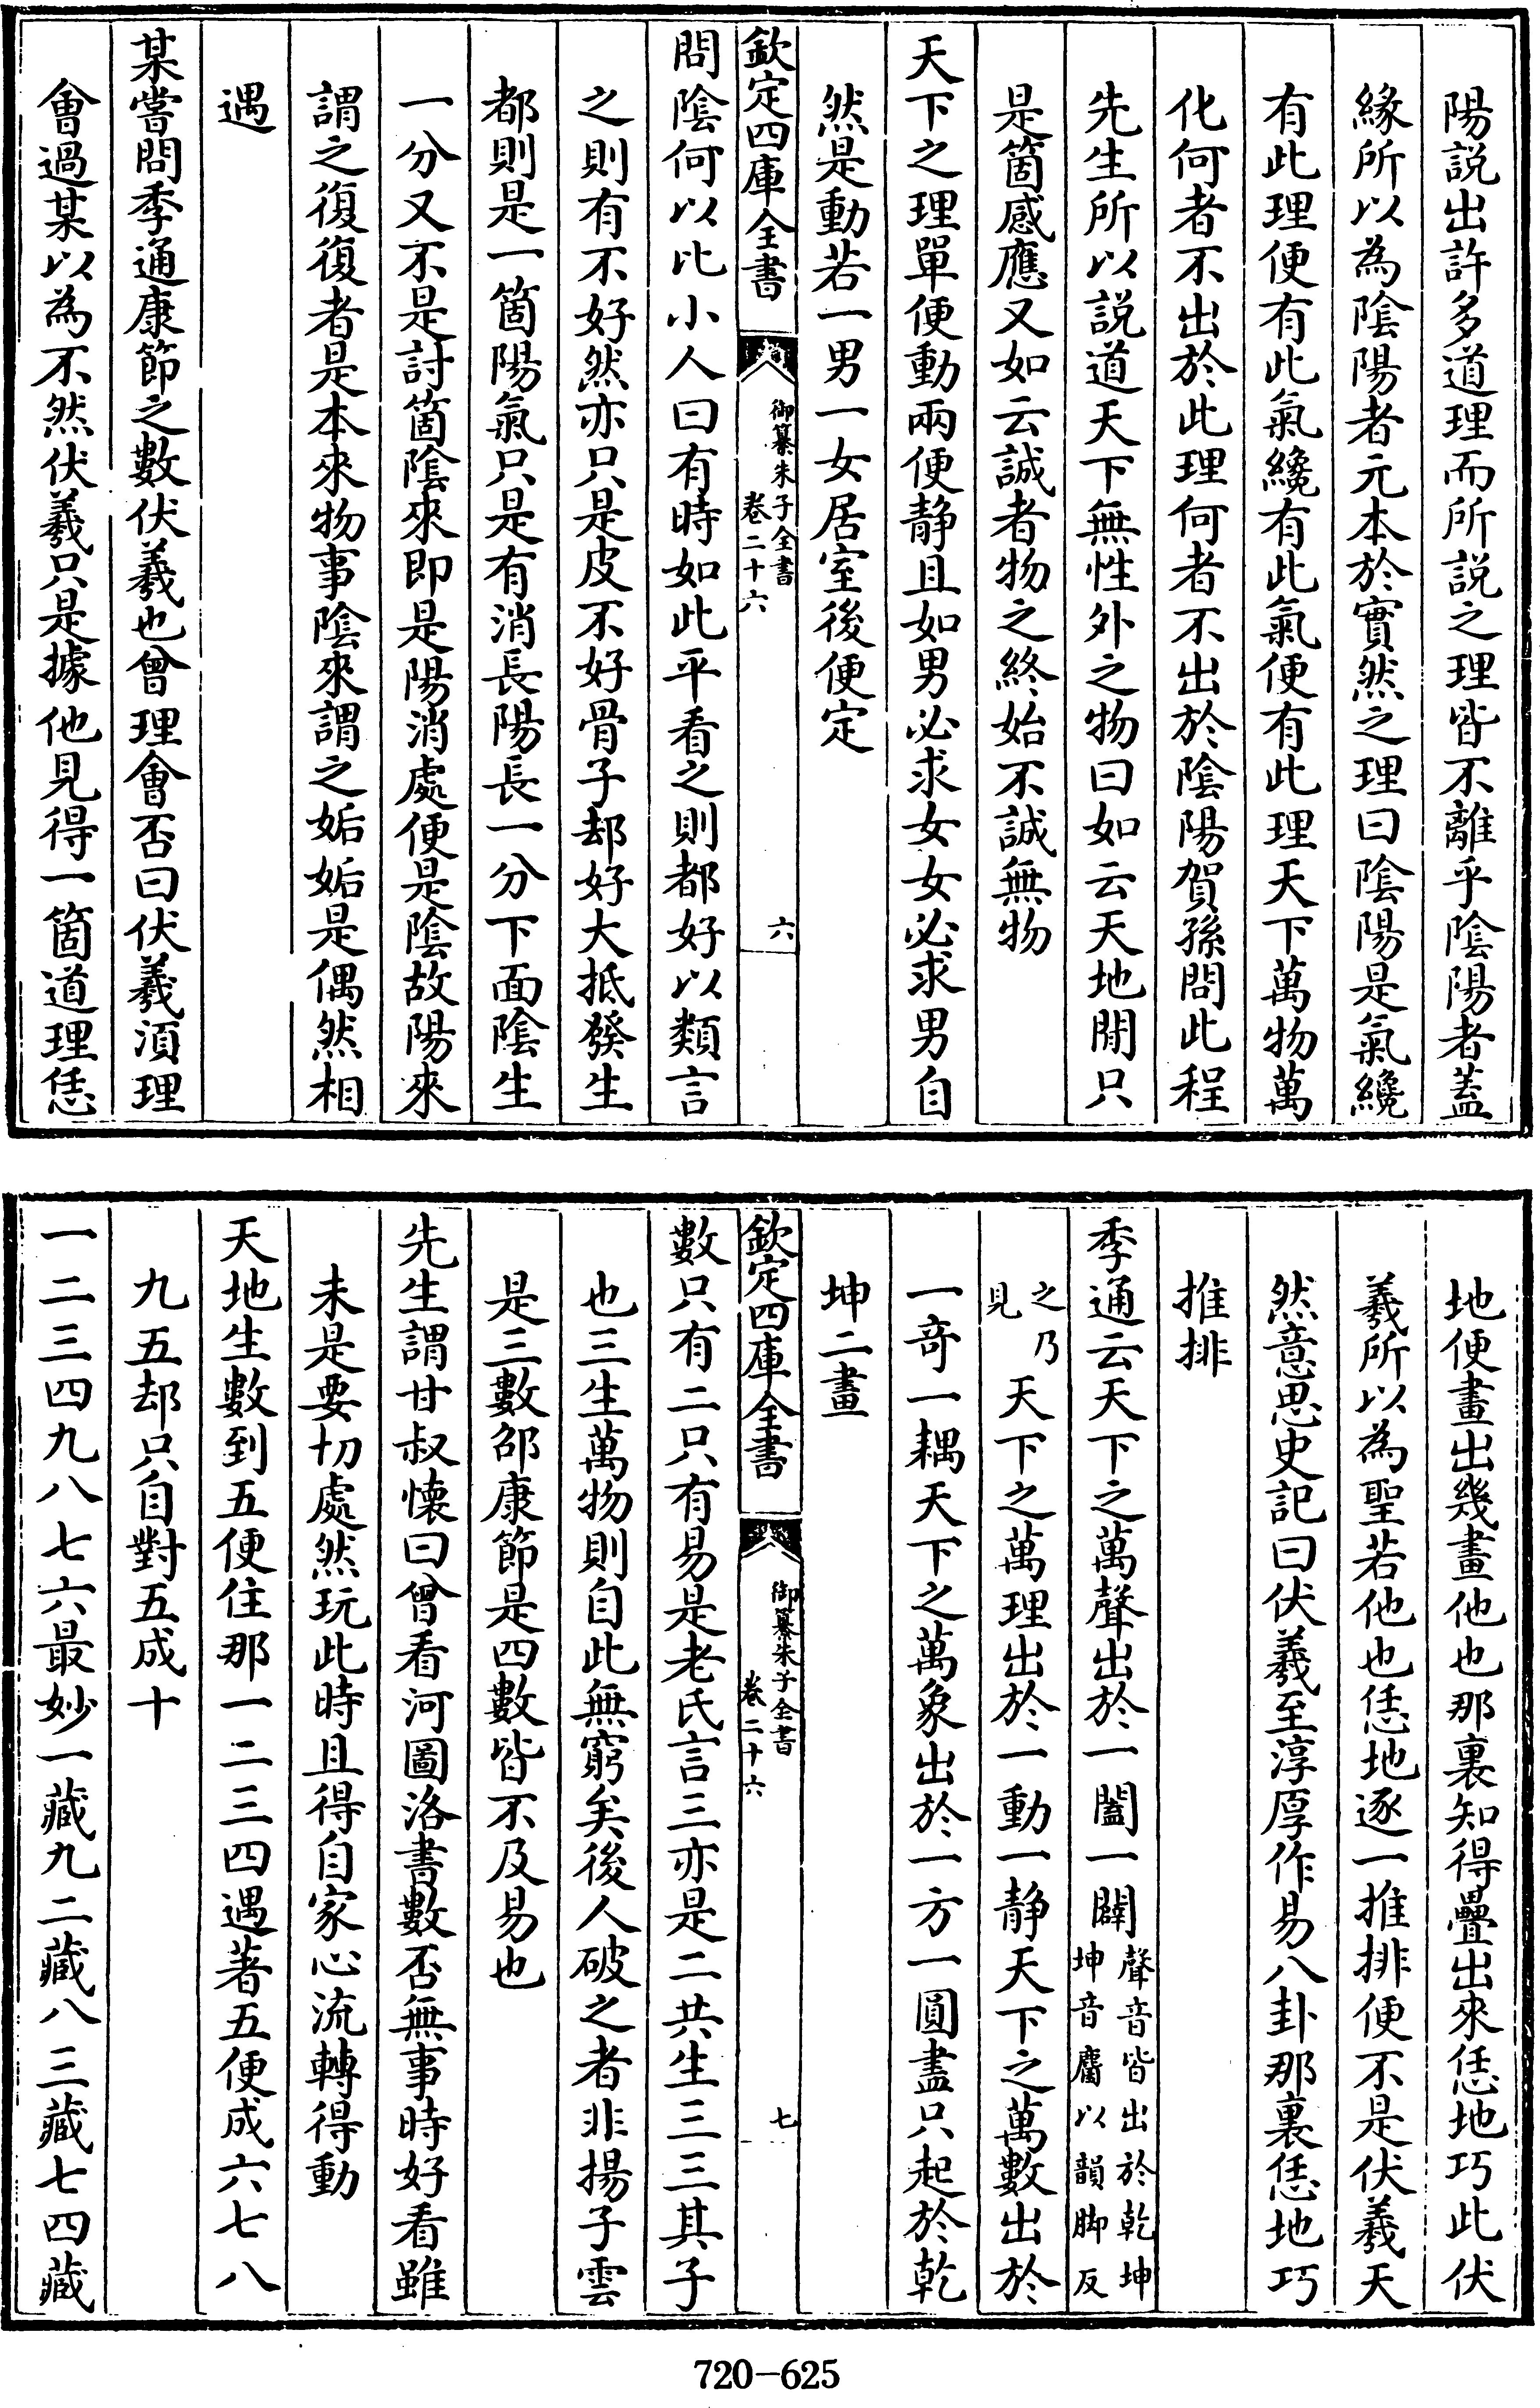 陽説出許多道理而所説之理皆不離乎陰陽者蓋
緣所以為陰陽者元本於實然之理曰陰陽是氣纔
有此理便有此氣纔有此氣便有此理天下萬物萬
化何者不出於此理何者不出於陰陽賀孫問此程
先生所以説道天下無性外之物曰如云天地閒只
是箇感應又如云誠者物之終始不誠無物
天下之理單便動兩便静且如男必求女女必求男自
然是動若一男一女居室後便定
欽定四庫全書
御纂朱子全書
卷二十六
六
問陰何以比小人曰有時如此平看之則都好以類言
之則有不好然亦只是皮不好骨子却好大抵發生
都則是一箇陽氣只是有消長陽長一分下面陰生
一分又不是討箇陰來即是陽消處便是陰故陽來
謂之復復者是本來物事陰來謂之姤姤是偶然相
遇
某嘗問季通康節之數伏羲也曾理會否曰伏羲湏理
會過某以為不然伏羲只是據他見得一箇道理恁
地便畫出幾畫他也那裏知得疊出來恁地巧此伏
羲所以為聖若他也恁地逐一推排便不是伏羲天
然意思史記曰伏羲至淳厚作易八卦那裏恁地巧
推排
季通云天下之萬聲出於一闔一闢聲音皆出於乾坤
坤音麿以韻脚反
之乃
見
天下之萬理出於一動一静天下之萬數出於
一奇一耦天下之萬象出於一方一圓盡只起於乾
坤二畫
欽定四庫全書
御纂朱子全書
卷二十六
七
數只有二只有易是老氏言三亦是二共生三三其子
也三生萬物則自此無窮矣後人破之者非揚子雲
是三數邵康節是四數皆不及易也
先生謂甘叔懷曰曾看河圖洛書數否無事時好看雖
未是要切處然玩此時且得自家心流轉得動
天地生數到五便住那一二三四遇著五便成六七八
九五却只自對五成十
一二三四九八七六最妙一藏九二藏八三藏七四藏
720-625